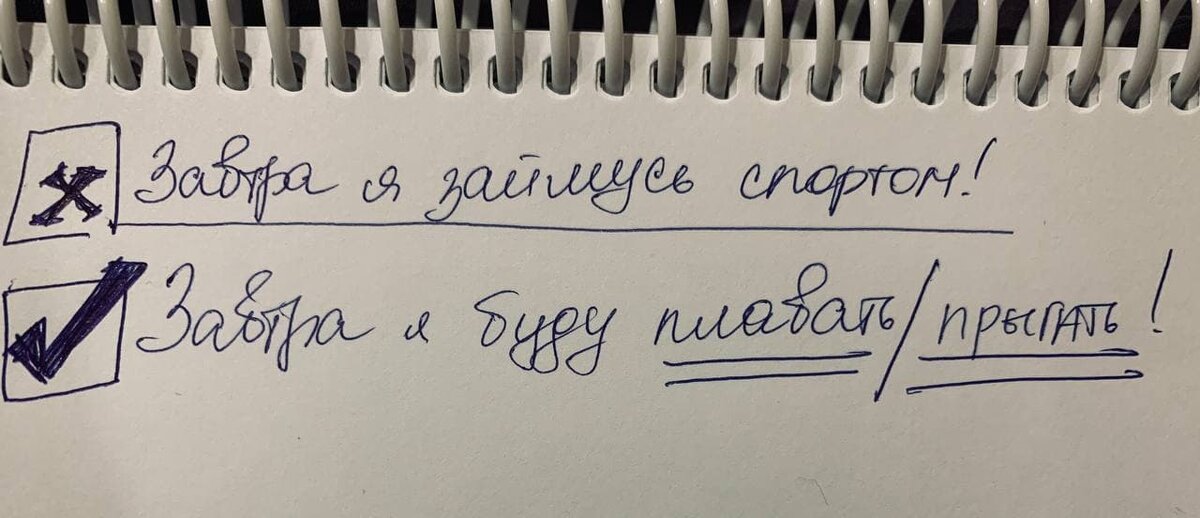 Завтра я займусь спортом!
Завтра я буду плавать/прыгать!